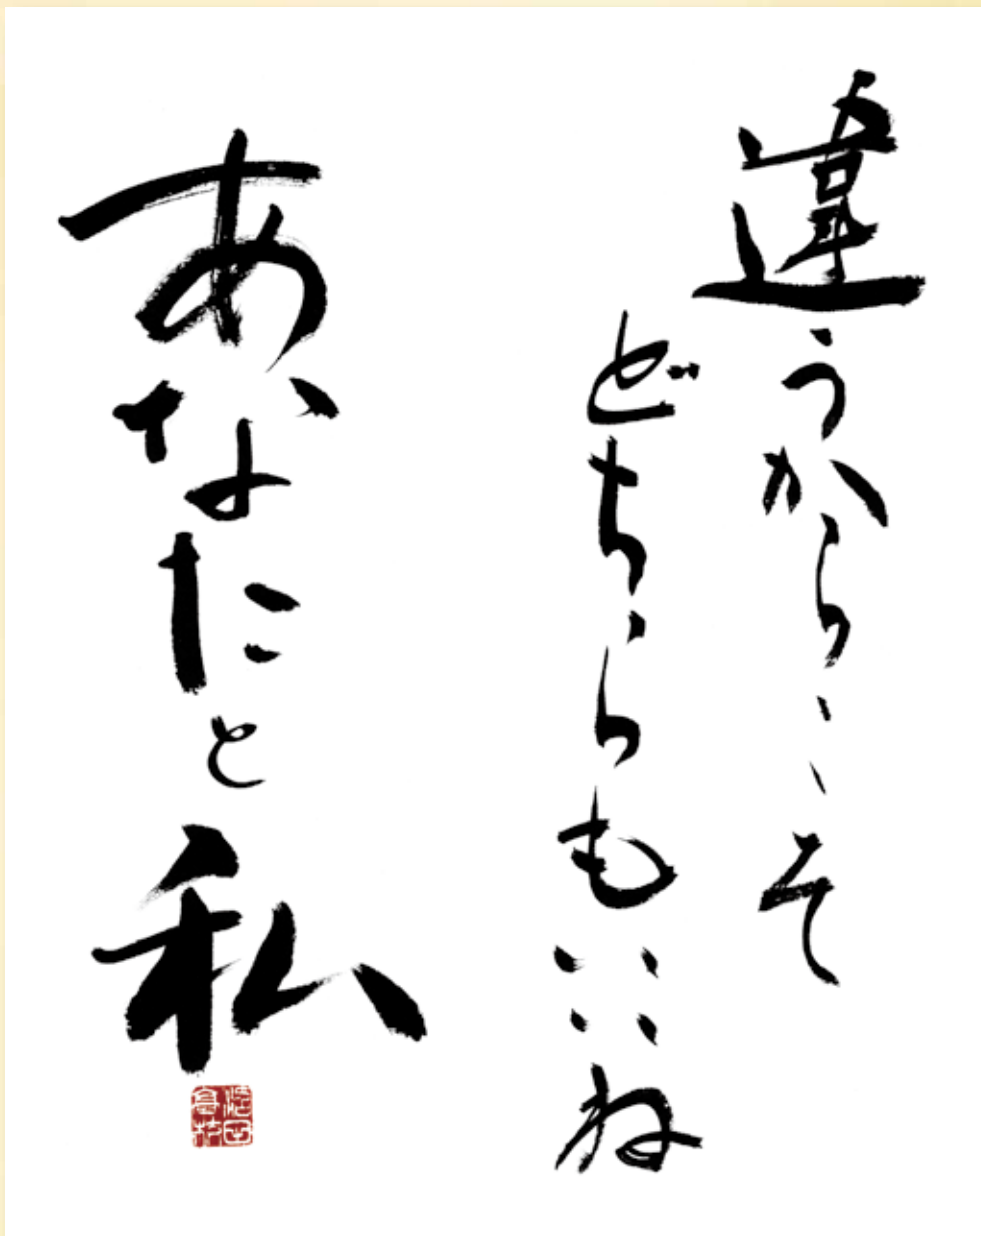 違うからこそ
どちらもいいね
あなたと私